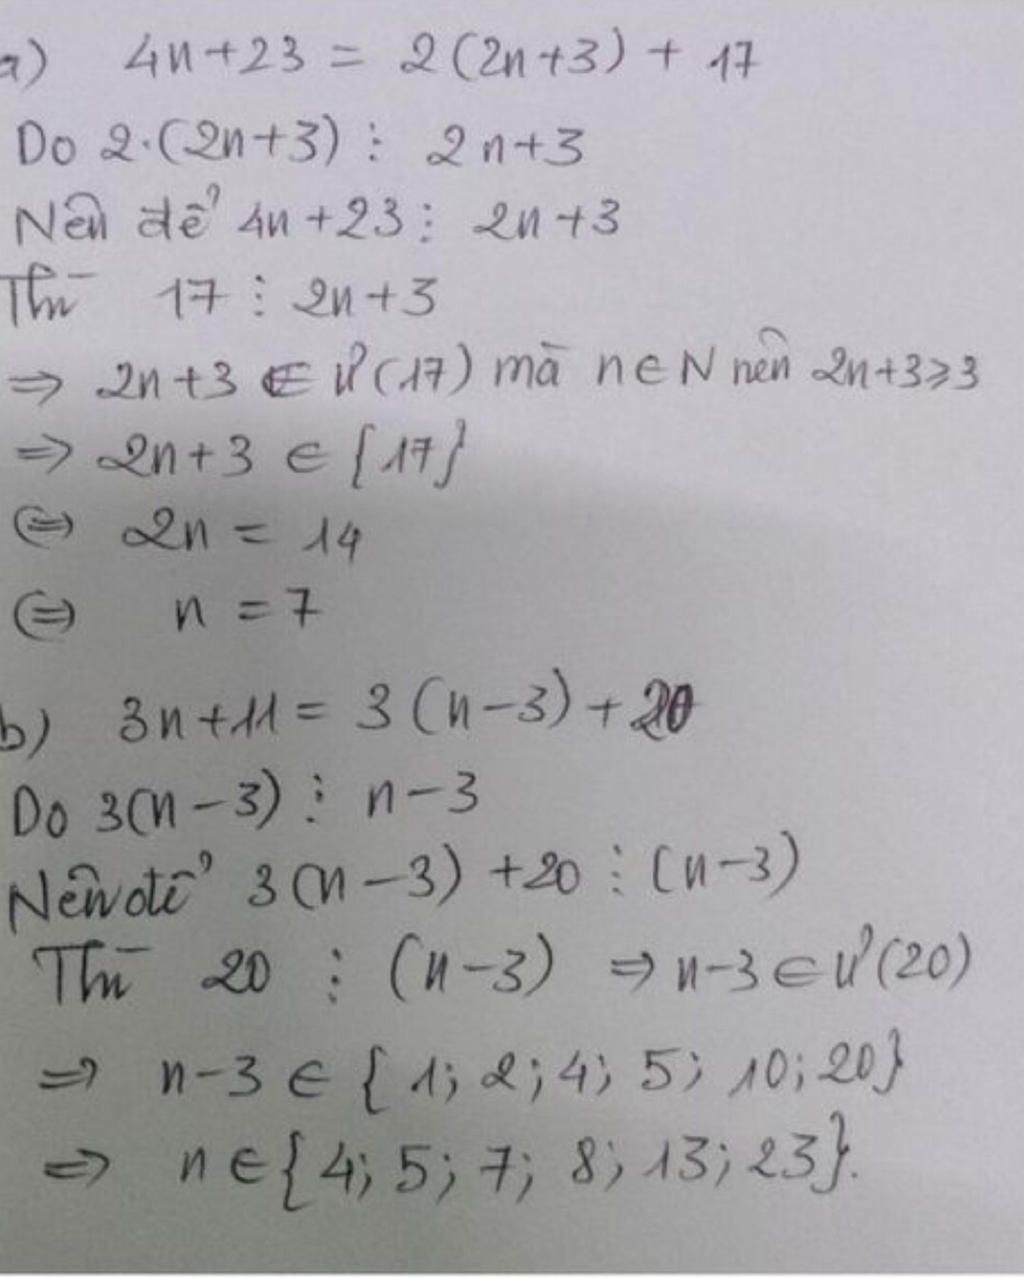 a) 4n+23 = 2(2n+3) + 17
Do 2.(2n+3) ⋮ 2n+3
Nên để 4n+23 ⋮ 2n+3
Thì 17 ⋮ 2n+3
⇒ 2n+3 ∈ Ư(17) mà n∈N nên 2n+3⩾3
⇒ 2n+3 ∈ {17}
⇔ 2n = 14
⇔ n = 7
b) 3n+11 = 3(n-3)+20
Do 3(n-3) ⋮ n-3
Nên để 3(n-3) +20 ⋮ (n-3)
Thì 20 ⋮ (n-3) ⇒ n-3 ∈ Ư(20)
⇒ n-3 ∈ {1; 2; 4; 5; 10; 20}
⇒ n∈{4; 5; 7; 8; 13; 23}.